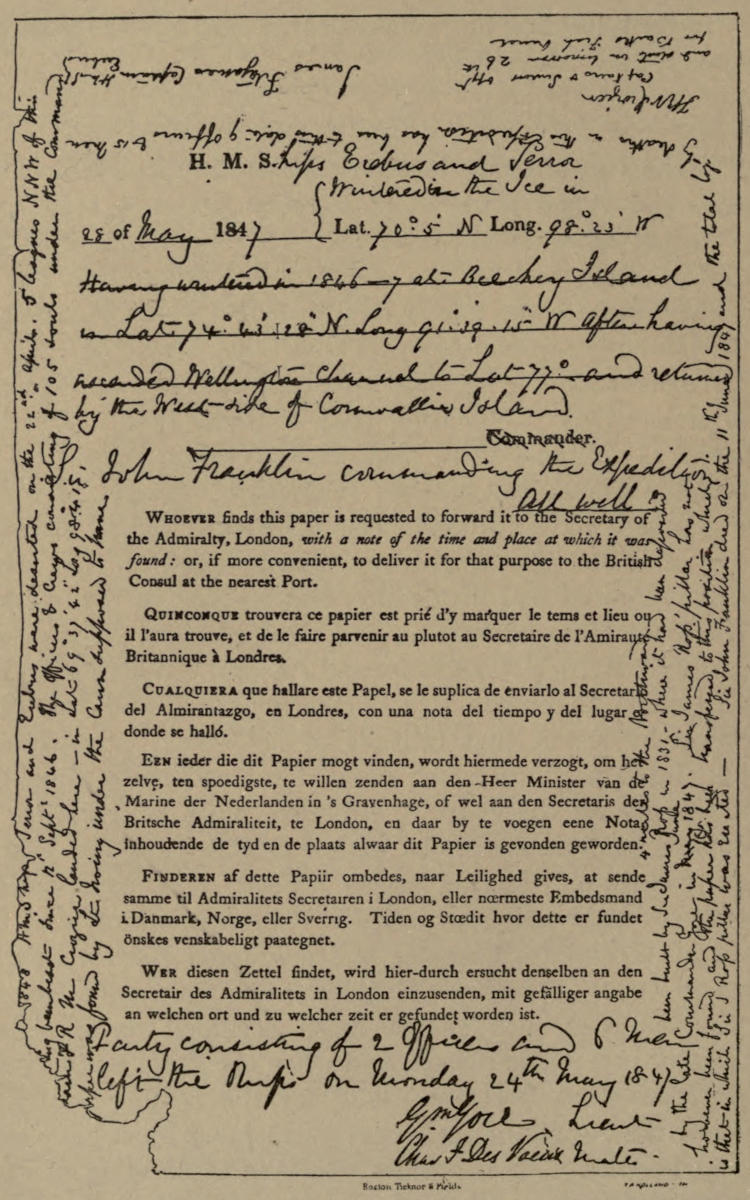 H. M. S.hips Erebus and Terror
Wintered in the Ice in
28 of May 1847 Lat. 70° 5' N Long. 98° 23' W
Having wintered in 1846–7 at Beechey Island
in Lat 74° 43' 28" N. Long 91° 39' 15" W After having
ascended Wellington Channel to Lat 77° and returned
by the West side of Cornwallis Island.
Commander.
Sir John Franklin commanding the Expedition
All well
WHOEVER finds this paper is requested to forward it to the Secretary of
the Admiralty, London, with a note of the time and place at which it was
found: or, if more convenient, to deliver it for that purpose to the British
Consul at the nearest Port.
QUINCONQUE trouvera ce papier est prié d'y marquer le tems et lieu ou
il l'aura trouve, et de le faire parvenir au plutot au Secretaire de l'Amirauté
Britannique à Londres.
CUALQUIERA que hallare este Papel, se le suplica de enviarlo al Secretario
del Almirantazgo, en Londres, con una nota del tiempo y del lugar
donde se halló.
EEN ieder die dit Papier mogt vinden, wordt hiermede verzogt, om het
zelve, ten spoedigste, te willen zenden aan den Heer Minister van de
Marine der Nederlanden in 's Gravenhage, of wel aan den Secretaris der
Britsche Admiraliteit, te London, en daar by te voegen eene Nota,
inhoudende de tyd en de plaats alwaar dit Papier is gevonden geworden.
FINDEREN af dette Papiir ombedes, naar Leilighed gives, at sende
samme til Admiralitets Secretairen i London, eller nœrmeste Embedsmand
i Danmark, Norge, eller Sverrig. Tiden og Stœdit hvor dette er fundet
önskes venskabeligt paategnet.
WER diesen Zettel findet, wird hier-durch ersucht denselben an den
Secretair des Admiralitets in London einzusenden, mit gefälliger angabe
an welchen ort und zu welcher zeit er gefundet worden ist.
Party consisting of 2 Officers and 6 Men
left the Ships on Monday 24th May 1847
Gm Gore, Lieut
Chas F. Des Voeux Mate.
1848 HM Ships Terror and Erebus were deserted on the 22nd April, 5 leagues NNW of this
having been beset since 12th Septr 1846. The Officers & Crews consisting of 105 souls under the Command
of Captain F.R.M. Crozier landed here – in Lat 69° 37' 42" Long 98° 41'
paper was found by Lt Irving under the Cairn supposed to have
been built by Sir James Ross in 1831 – where it had been deposited
4 miles to the Northward
by the late Commander Gore in June 1847. Sir James Ross' pillar has not
however been found and the paper has been transferred to this position which
is that in which Sir J Ross pillar was erected – Sir John Franklin died on the 11th June 1847 and the total loss by
by deaths in the Expedition has been to this date 9 officers & 15 men
James Fitzjames Captain HMS Erebus
F R M Crozier
Captain & Senior Offr
and start on tomorrow 26th
for Backs Fish River
Boston Ticknor & Fields